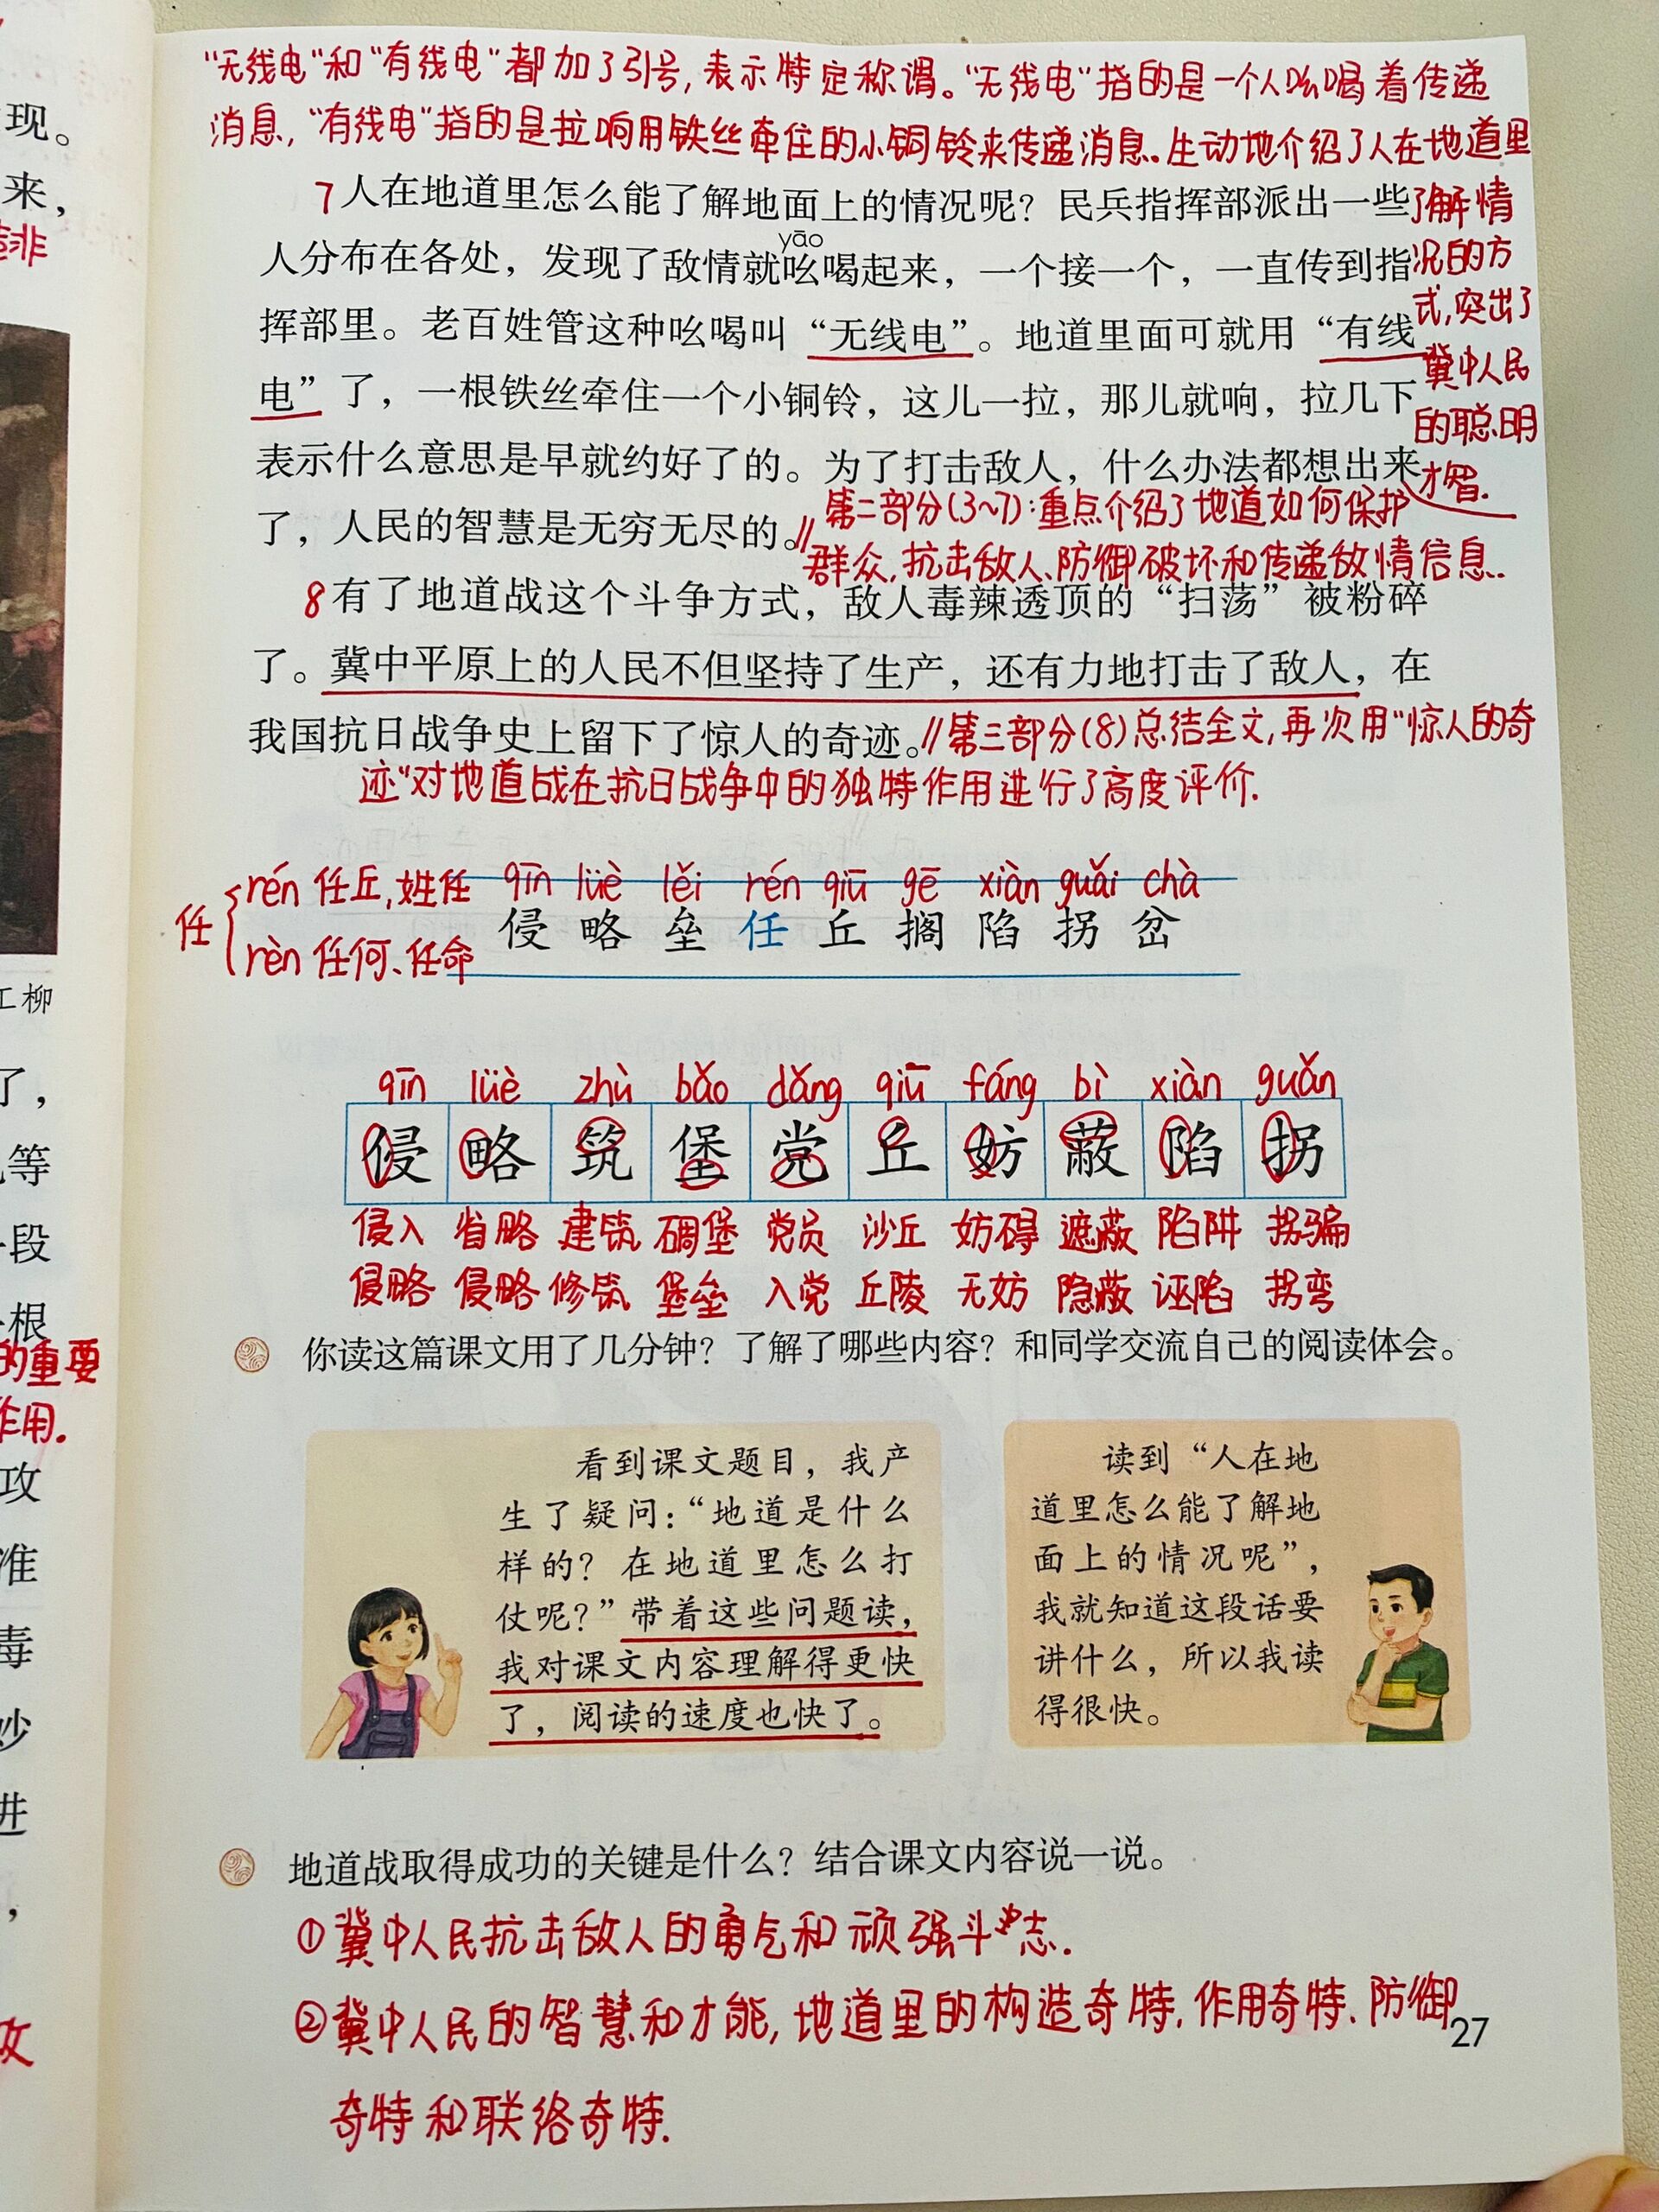 “无线电”和“有线电”都加了引号,表示特定称谓。“无线电”指的是一个人吆喝着传递
消息,“有线电”指的是拉响用铁丝牵住的小铜铃来传递消息。生动地介绍了人在地道里
了解情
况的方
式,突出了
冀中人民
的聪明
才智.
7人在地道里怎么能了解地面上的情况呢？民兵指挥部派出一些
yāo
人分布在各处，发现了敌情就吆喝起来，一个接一个，一直传到指
挥部里。老百姓管这种吆喝叫“无线电”。地道里面可就用“有线
电”了，一根铁丝牵住一个小铜铃，这儿一拉，那儿就响，拉几下
表示什么意思是早就约好了的。为了打击敌人，什么办法都想出来
了，人民的智慧是无穷无尽的。//
第二部分(3~7):重点介绍了地道如何保护
群众,抗击敌人、防御破坏和传递敌情信息.
8有了地道战这个斗争方式，敌人毒辣透顶的“扫荡”被粉碎
了。冀中平原上的人民不但坚持了生产，还有力地打击了敌人，在
我国抗日战争史上留下了惊人的奇迹。//第三部分(8)总结全文,再次用“惊人的奇
迹”对地道战在抗日战争中的独特作用进行了高度评价.
任
rén 任丘,姓任
rèn 任何、任命
qīn lüè lěi rén qiū gē xiàn guǎi chà
侵 略 垒 任 丘 搁 陷 拐 岔
qīn lüè zhù bǎo dǎng qiū fáng bì xiàn guǎn
侵 略 筑 堡 党 丘 妨 蔽 陷 拐
侵入 省略 建筑 碉堡 党员 沙丘 妨碍 遮蔽 陷阱 拐骗
侵略 侵略 修筑 堡垒 入党 丘陵 无妨 隐蔽 诬陷 拐弯
你读这篇课文用了几分钟？了解了哪些内容？和同学交流自己的阅读体会。
看到课文题目，我产
生了疑问：“地道是什么
样的？在地道里怎么打
仗呢？”带着这些问题读，
我对课文内容理解得更快
了，阅读的速度也快了。
读到“人在地
道里怎么能了解地
面上的情况呢”，
我就知道这段话要
讲什么，所以我读
得很快。
地道战取得成功的关键是什么？结合课文内容说一说。
①冀中人民抗击敌人的勇气和顽强斗志.
②冀中人民的智慧和才能,地道里的构造奇特.作用奇特.防御
奇特和联络奇特.
27
现。
来，
非
工柳
了，
等
段
根
的重要
作用.
攻
准
毒
妙
进
，
攻